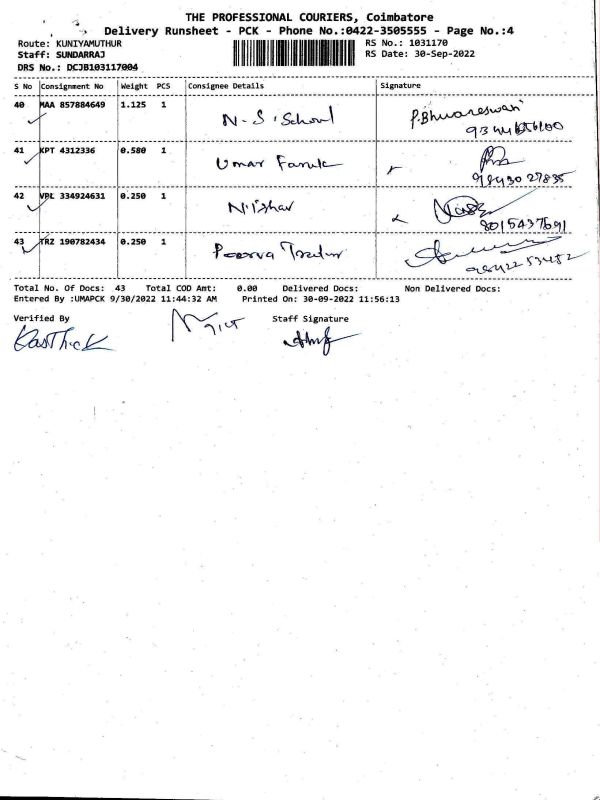 THE PROFESSIONAL COURIERS, Coimbatore
Delivery Runsheet - PCK - Phone No.:0422-3505555 - Page No.:4
Route: KUNIYAMUTHUR RS No.: 1031170
Staff: SUNDARRAJ RS Date: 30-Sep-2022
DRS No.: DCJB103117004
S No Consignment No Weight PCS Consignee Details Signature
40 MAA 857884649 1.125 1 N.S. School P.Bhuvaneswari
41 KPT 4312336 0.580 1 Umar Faruk
9843027835
42 VPL 334924631 0.250 1 Nishar
8015437691
43 TRZ 190782434 0.250 1 Poorva Trader
Total No. Of Docs: 43 Total COD Amt: 0.00 Delivered Docs: Non Delivered Docs:
Entered By :UMAPCK 9/30/2022 11:44:32 AM Printed On: 30-09-2022 11:56:13
Verified By Staff Signature
Karthick